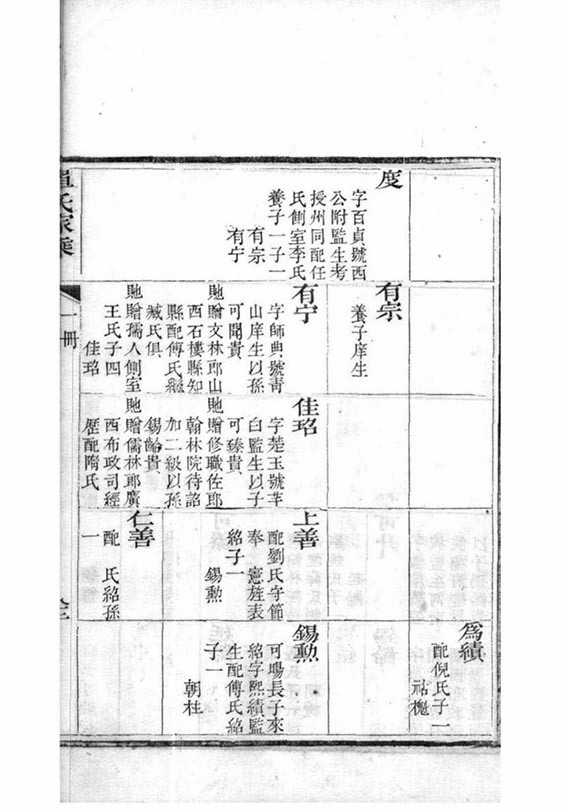 度
字百貞號西
公附監生考
授州同配任
氏側室李氏
養子一子一
有宗
有宁
有宗
養子庠生
有宁
字師典號青
山庠生以孫
可聞貴
貤贈文林郎山
西石樓縣知
縣配傅氏繼
臧氏俱
貤贈孺人側室
王氏子四
佳珆
佳珆
字楚玉號莘
白監生以子
可臻貴
貤贈修職佐郎
翰林院待詔
加二級以孫
錫齡貴
貤贈儒林郎廣
西布政司經
歷配隋氏
上善
配劉氏守節
奉憲旌表
紹子一
錫勲
仁善
配氏紹孫
一
為績
配倪氏子一
祜櫆
錫勲
可場長子來
紹字熙績監
生配傅氏紹
子一
朝柱
氏家乘
一冊